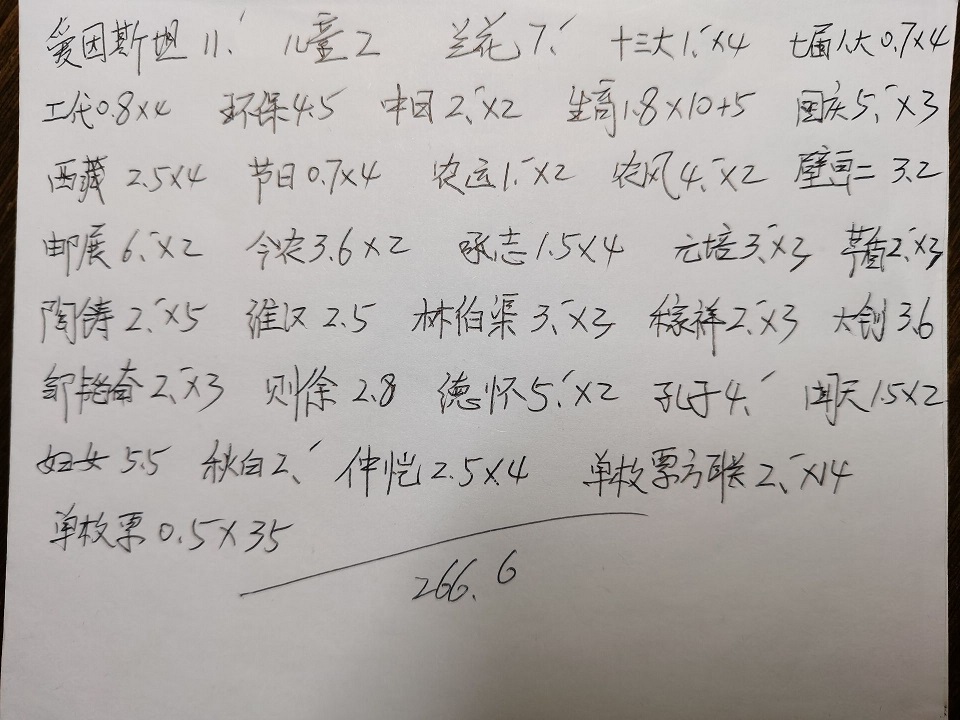 爱因斯坦 11.- 儿童2 兰花7.- 十三大1.-×4 七届人大0.7×4
工代0.8×4 环保4.5 中日2.-×2 生肖1.8×10+5 国庆5.-×3
西藏 2.5×4 节日0.7×4 农运1.-×2 农风4.-×2 壁画二 3.2
邮展6.-×2 今农3.6×2 咏志1.5×4 元培3.-×3 草盾2.-×3
陶铸2.-×5 维汉2.5 林伯渠3.-×3 稼祥2.-×3 大钊3.6
邹韬奋2.-×3 则徐2.8 德怀5.-×2 孔子4.- 闻天1.5×2
妇女5.5 秋白2.- 仲恺2.5×4 单枚票方联2.-×14
单枚票0.5×35
266.6